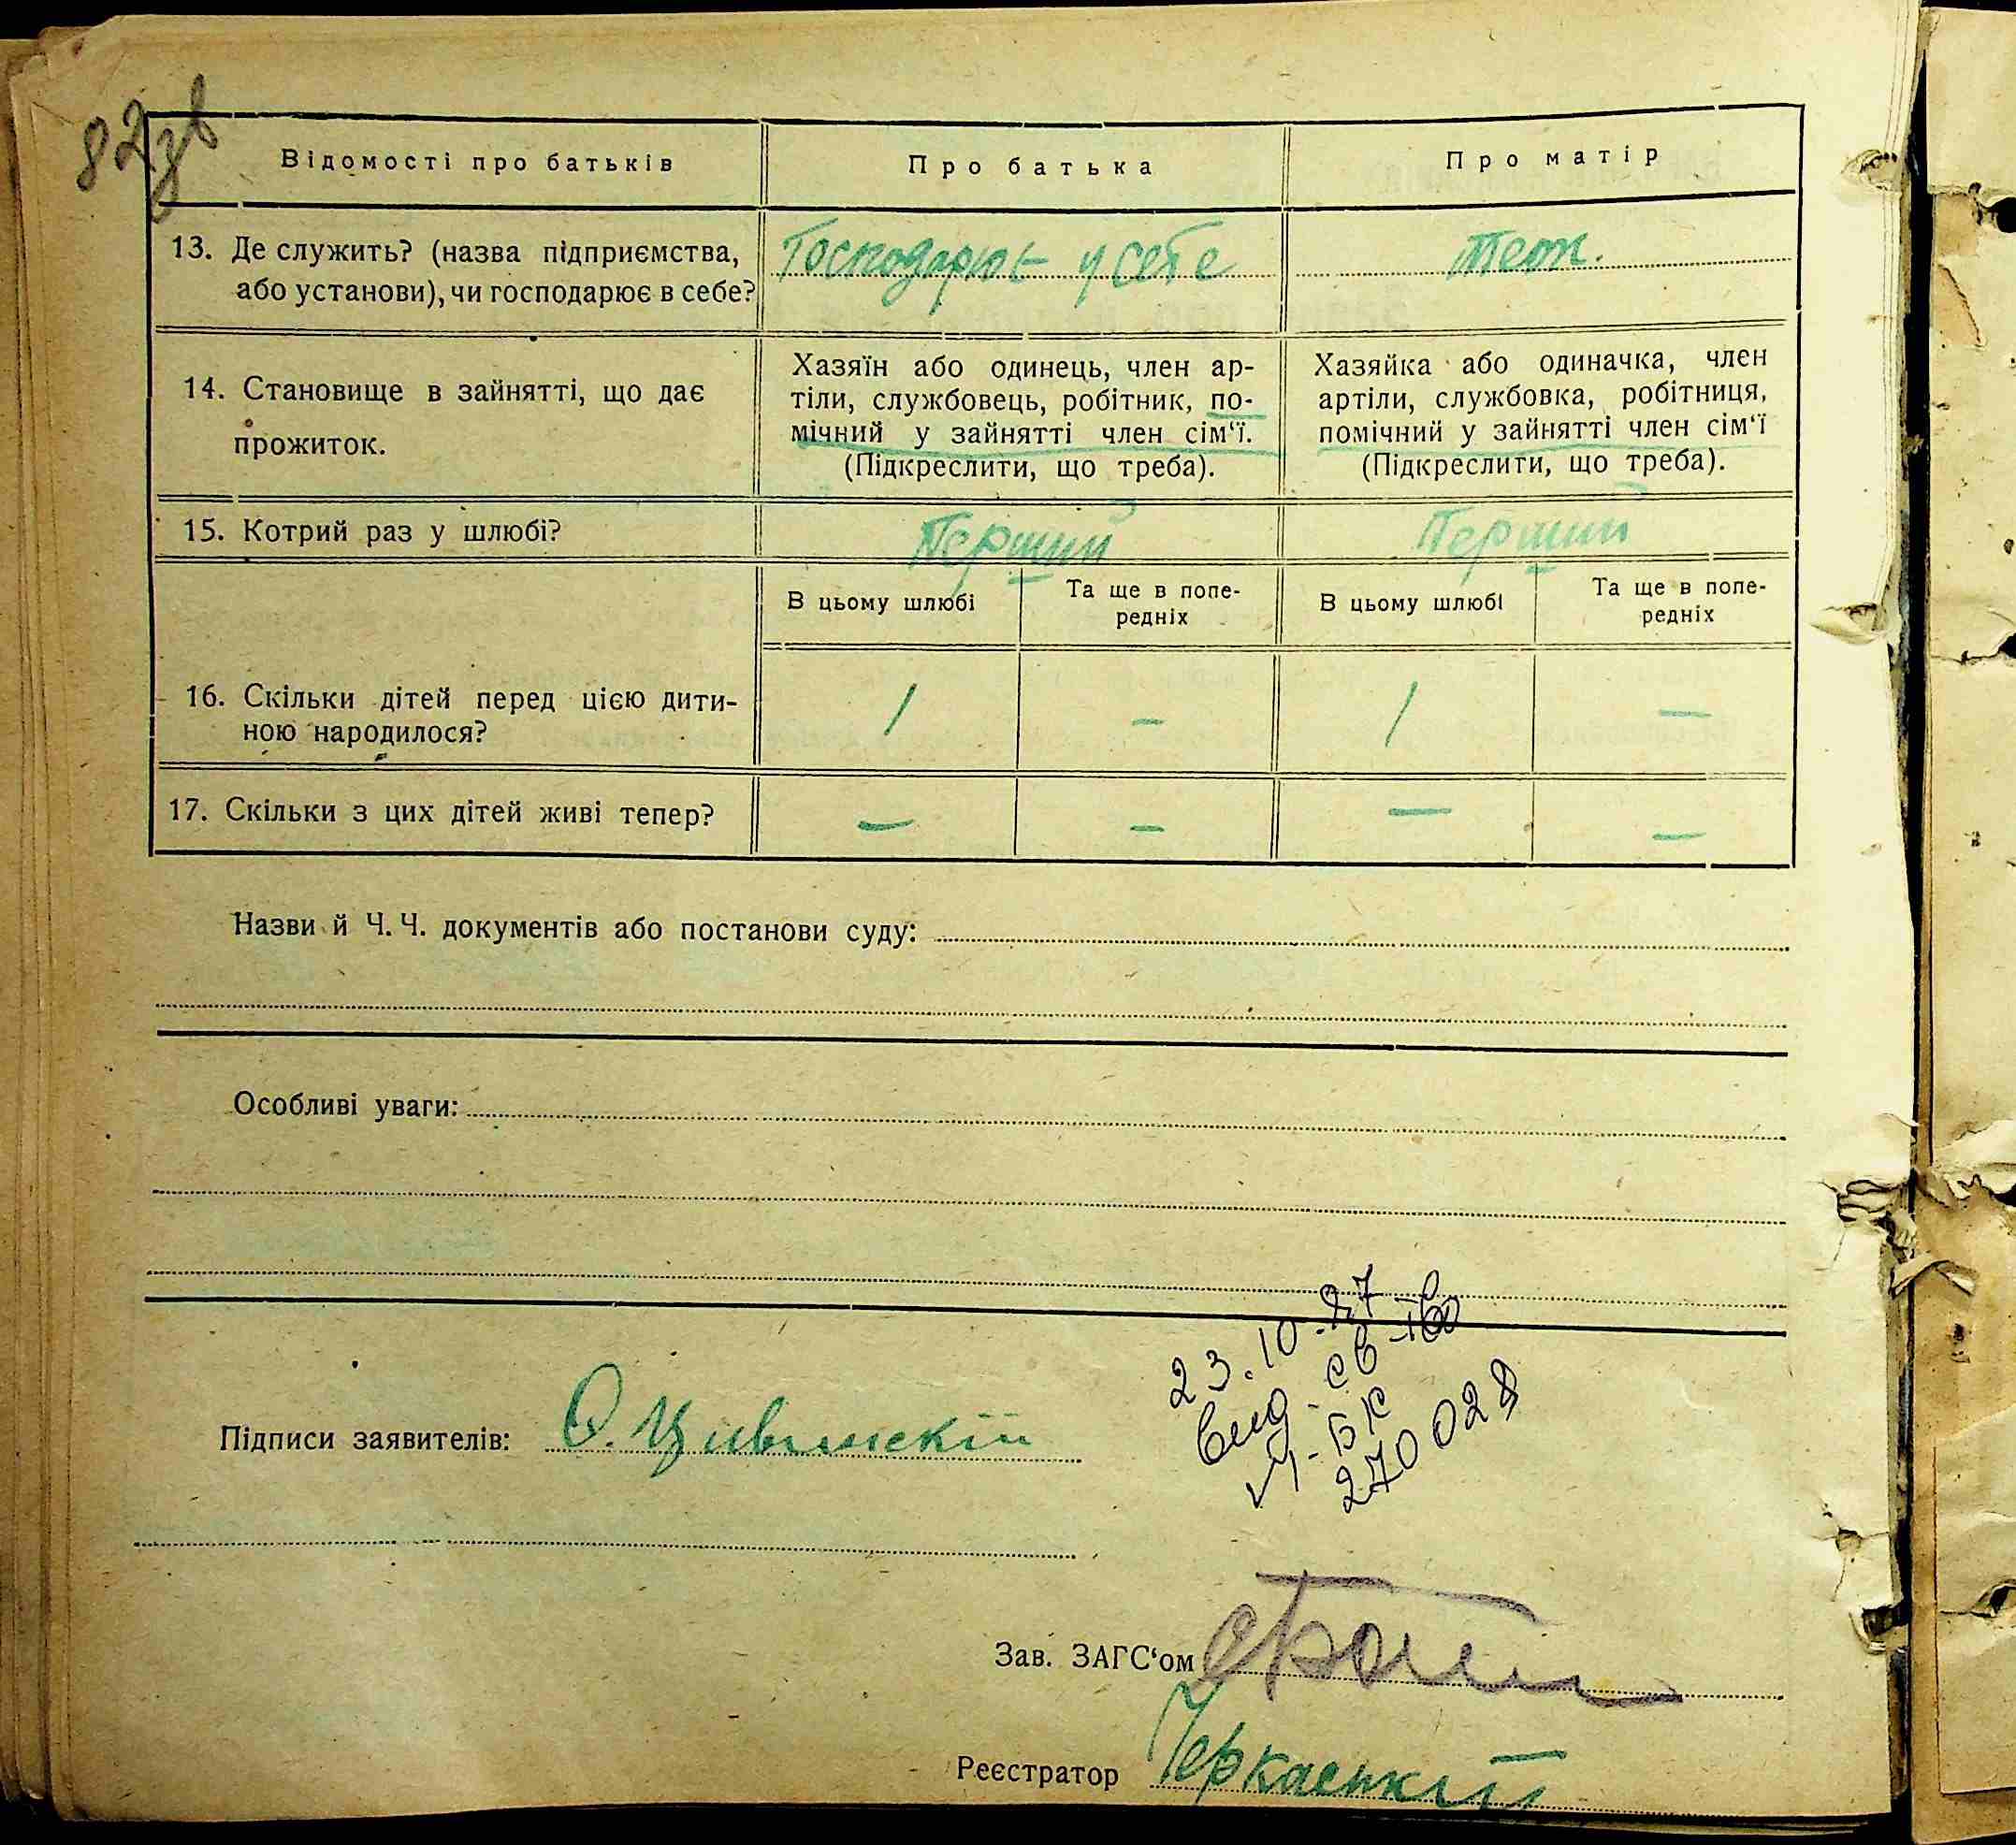 82зв
Відомості про батьків Про батька Про матір
13. Де служить? (назва підприємства, Господарює у себе теж.
або установи), чи господарює в себе?
Хазяїн або одинець, член ар- Хазяйка або одиначка, член
14. Становище в зайнятті, що дає тіли, службовець, робітник, по- артіли, службовка, робітниця,
прожиток. мічний у зайнятті член сім‘ї. помічний у зайнятті член сім‘ї
(Підкреслити, що треба). (Підкреслити, що треба).
15. Котрий раз у шлюбі? Перший Перший
В цьому шлюбі Та ще в попе- В цьому шлюбі Та ще в попе-
редніх редніх
16. Скільки дітей перед цією дити- 1 — 1 —
ною народилося?
17. Скільки з цих дітей живі тепер? — — — —
Назви й Ч. Ч. документів або постанови суду:
Особливі уваги:
23.10-87
Выд-св-во
V-БК
270028
Підписи заявителів: О. Цивинскій
Зав. ЗАГС‘ом
Реєстратор Черкаський